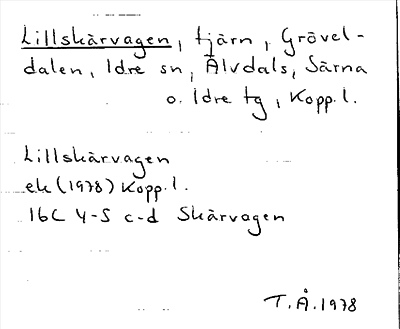 Lillskärvagen, tjärn, Grövel-
dalen, Idre sn, Älvdals, Särna
o. Idre tg, Kopp.l.
Lillskärvagen
ek (1978) Kopp.l.
16C 4-5 c-d Skärvagen
T.Å.1978